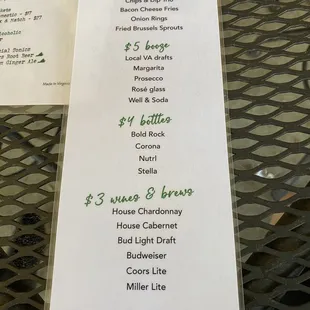 Chips & Dip Trio
Bacon Cheese Fries
Onion Rings
Fried Brussels Sprouts
$5 booze
Local VA drafts
Margarita
Prosecco
Rosé glass
Well & Soda
$4 bottles
Bold Rock
Corona
Nutrl
Stella
$3 wines & brews
House Chardonnay
House Cabernet
Bud Light Draft
Budweiser
Coors Lite
Miller Lite
- $17
& Match - $27
Root Beer
Ginger Ale